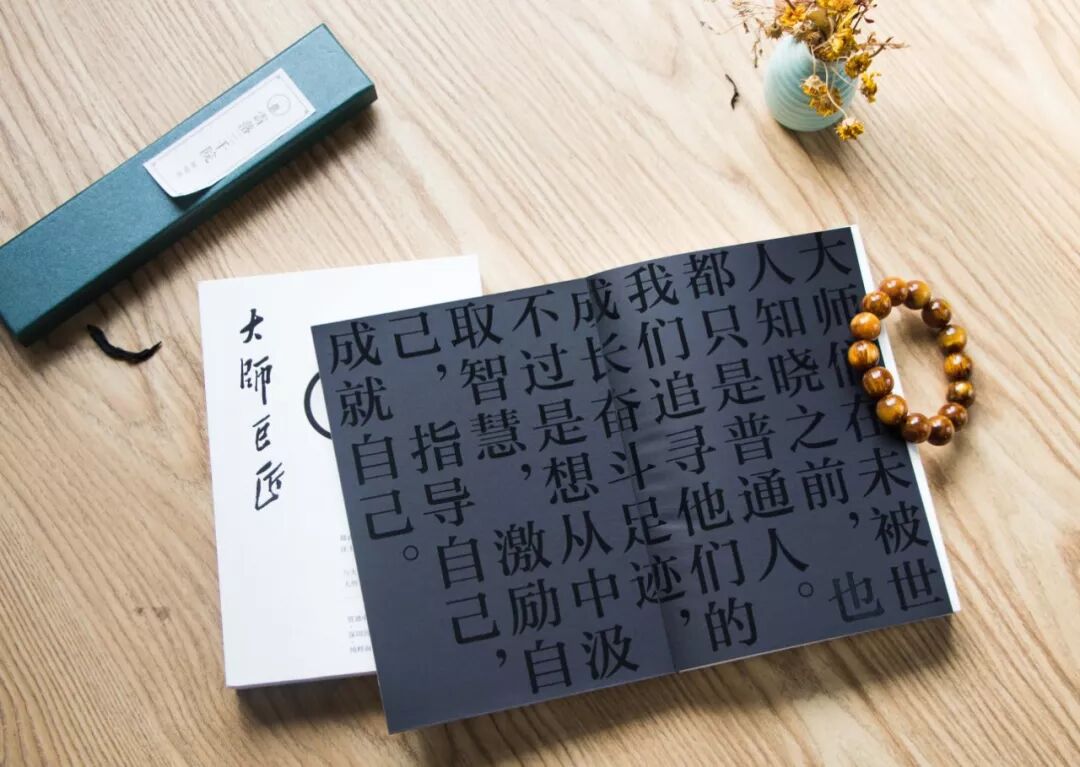 大师们在未被世
人知晓之前，也
都只是普通人。
我们追寻他们的
成长奋斗足迹，
不过是想从中汲
取智慧，激励自
己，指导自己，
成就自己。
大師巨匠